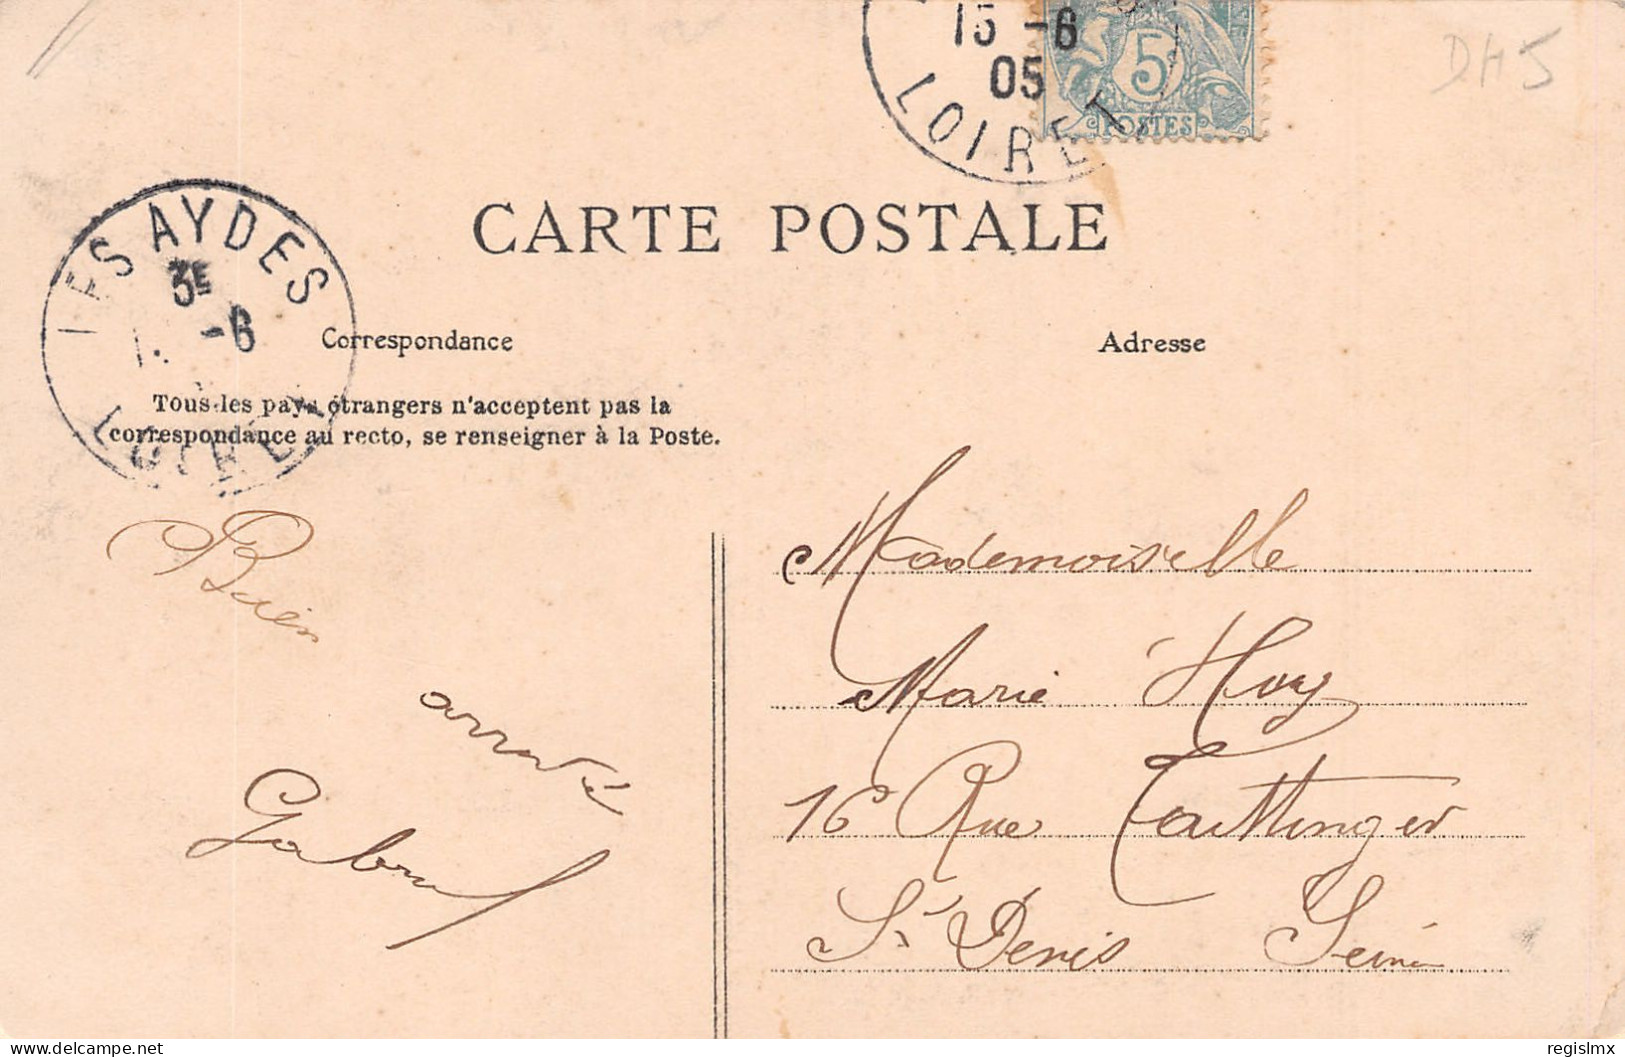 15 -6
05
LOIRET
5
POSTES
DH5
CARTE POSTALE
LES AYDES
3E
1. -6
LOIRET
Correspondance
Adresse
Tous les pays étrangers n'acceptent pas la
correspondance au recto, se renseigner à la Poste.
Bien
arrivé
Gabriel
Mademoiselle
Marie Hoy
16 Rue
St Denis Seine
delcampe.net
regislmx